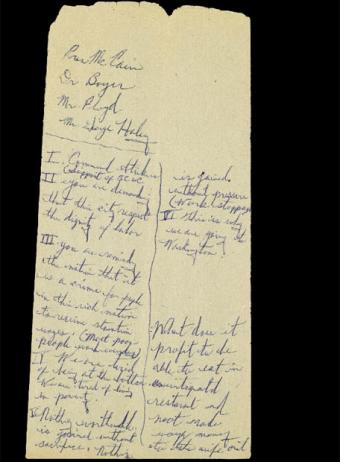 Dr Boyer
Mr
Mr
I.
(Support of
II you are demanding
that this city respect
the dignity of labor
III you are reminding
the nation that it
is a crime for people
in this rich nation
to receive starvation
wages. (Most poor
people work everyday
I We are tired
of being at the bottom
We are tired of living
in poverty
V Nothing worthwhile
is gained without
sacrifice, Nothing
is gained
without pressure
(Work stoppage
VI This is why
we are going to
Washington
What does it
profit to be
able to eat in
an integrated
restaurant and
not made
enough money
to take wife out